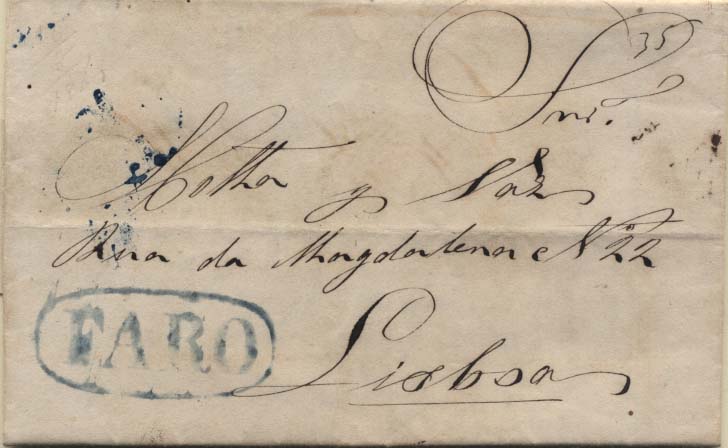 35
Snr.
Motta y Vaz
Rua da Magdalena Nº 22
FARO
Lisboa